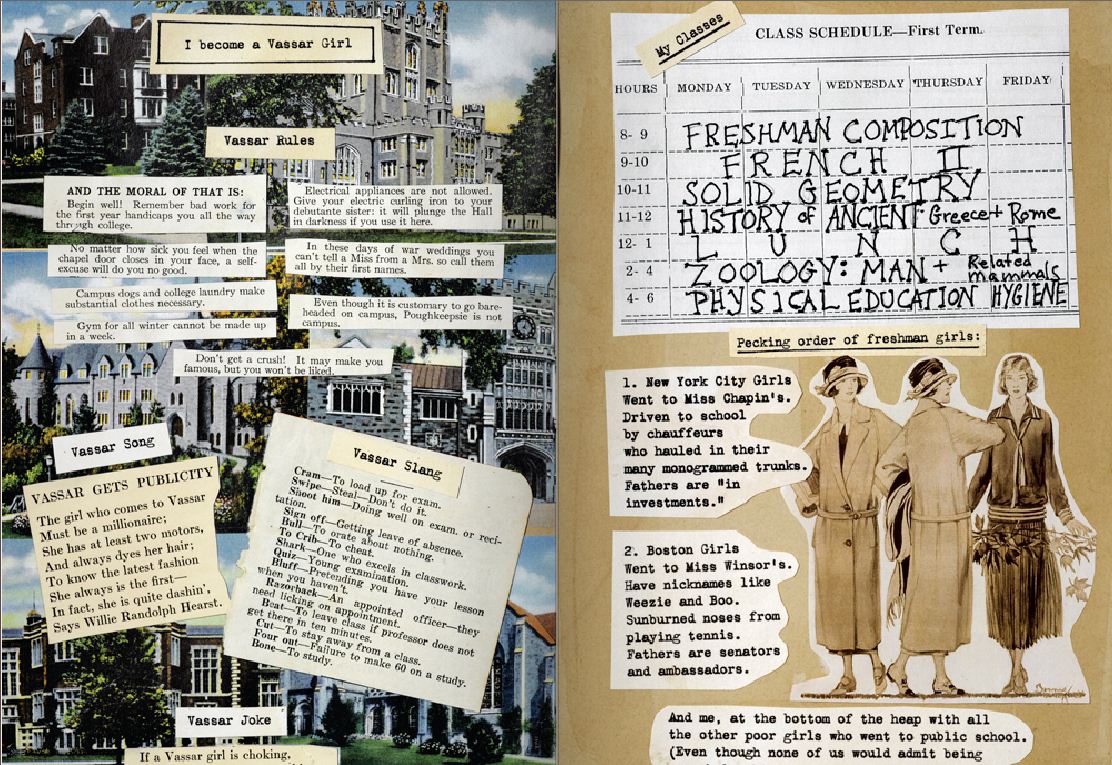 I become a Vassar Girl
Vassar Rules
AND THE MORAL OF THAT IS:
Begin well! Remember bad work for
the first year handicaps you all the way
through college.
Electrical appliances are not allowed.
Give your electric curling iron to your
debutante sister: it will plunge the Hall
in darkness if you use it here.
No matter how sick you feel when the
chapel door closes in your face, a self-
excuse will do you no good.
In these days of war weddings you
can't tell a Miss from a Mrs. so call them
all by their first names.
Campus dogs and college laundry make
substantial clothes necessary.
Even though it is customary to go bare-
headed on campus, Poughkeepsie is not
campus.
Gym for all winter cannot be made up
in a week.
Don't get a crush! It may make you
famous, but you won't be liked.
Vassar Song
VASSAR GETS PUBLICITY
The girl who comes to Vassar
Must be a millionaire;
She has at least two motors,
And always dyes her hair;
To know the latest fashion
She always is the first—
In fact, she is quite dashin',
Says Willie Randolph Hearst.
Vassar Slang
Cram—To load up for exam.
Swipe—Steal—Don't do it.
Shoot him—Doing well on exam. or reci-
tation.
Sign off—Getting leave of absence.
Bull—To orate about nothing.
To Crib—To cheat.
Shark—One who excels in classwork.
Quiz—Young examination.
Bluff—Pretending you have your lesson
when you haven't.
Razorback—An appointed officer—they
need licking on appointment.
Beat—To leave class if professor does not
get there in ten minutes.
Cut—To stay away from a class.
Four out—Failure to make 60 on a study.
Bone—To study.
Vassar Joke
If a Vassar girl is choking,
My Classes
CLASS SCHEDULE—First Term.
HOURS MONDAY TUESDAY WEDNESDAY THURSDAY FRIDAY
8- 9 FRESHMAN COMPOSITION
9-10 FRENCH II
10-11 SOLID GEOMETRY
11-12 HISTORY of ANCIENT Greece + Rome
12- 1 LUNCH
2- 4 ZOOLOGY: MAN + Related mammals
4- 6 PHYSICAL EDUCATION HYGIENE
Pecking order of freshman girls:
1. New York City Girls
Went to Miss Chapin's.
Driven to school
by chauffeurs
who hauled in their
many monogrammed trunks.
Fathers are "in
investments."
2. Boston Girls
Went to Miss Winsor's.
Have nicknames like
Weezie and Boo.
Sunburned noses from
playing tennis.
Fathers are senators
and ambassadors.
And me, at the bottom of the heap with all
the other poor girls who went to public school.
(Even though none of us would admit being